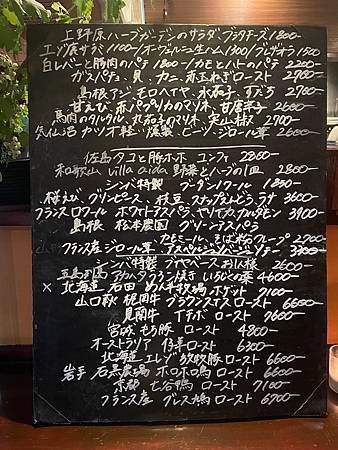 上野原ハーブガーデンのサラダ ブラータチーズ 1800-
エゾ鹿サラミ 1100-/オーヴェルニュ生ハム 1300/ブレザオラ 1500
白レバーと豚肉のパテ 1800-/カモとハトのパテ 2200-
ガスパチョ、貝、カニ、赤玉ねぎロースト 2700-
島根アジ、モロヘイヤ、水茄子、すだち 2700
甘えび、赤パプリカのマリネ、甘唐辛子 2600-
馬肉のタルタル、丸茄子のマリネ、実山椒 2700-
気仙沼カツオ軽い燻製、ビーツ・ジロール茸 2600-
佐島タコと豚ホホ コンフィ 2860-
和歌山 villa aida 野菜とハーブの1皿 2800-
シンバ特製 ブーダンノワール 1850-
桜えび、グリンピース、枝豆、スナップえんどう、うすい 3600-
フランスロワール ホワイトアスパラ、ヤリイカ、カルダモン 3900-
島根 松本農園 グリーンアスパラ
フランス産ジロール茸
シンバ特製 ブイヤベース おじや様 2600-
五島列島 アカハタうろこ焼き いろどりの菜 4600-
× 北海道 石田めん羊牧場 ポケット 7100-
山口萩 梶岡牛 ロース ロースト 6600-
見蘭牛 イチボ ロースト 7600-
宮城 もち豚 ロースト 4800-
オーストラリア 仔羊 ロースト 6300-
北海道 エレゾ 放牧豚 ロースト 6600-
岩手 石黒農場 ホロホロ鳥 ロースト 6600-
京都 七谷鴨 ロースト 7100-
フランス産 ブレス鳩 ロースト 6700-